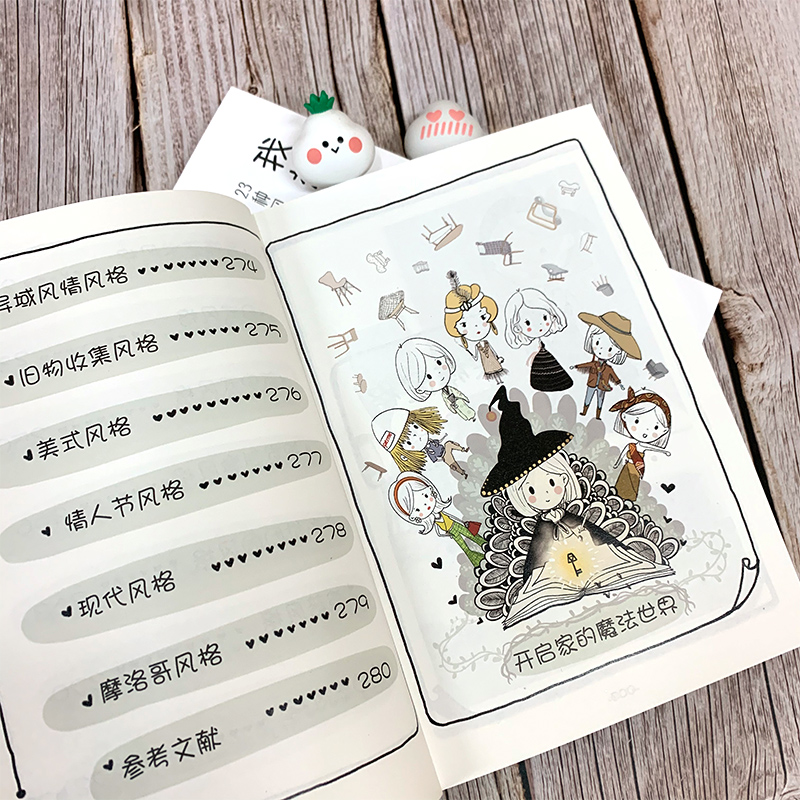 我
23种
异域风情风格 274
旧物收集风格 275
美式风格 276
情人节风格 277
现代风格 278
摩洛哥风格 279
参考文献 280
开启家的魔法世界